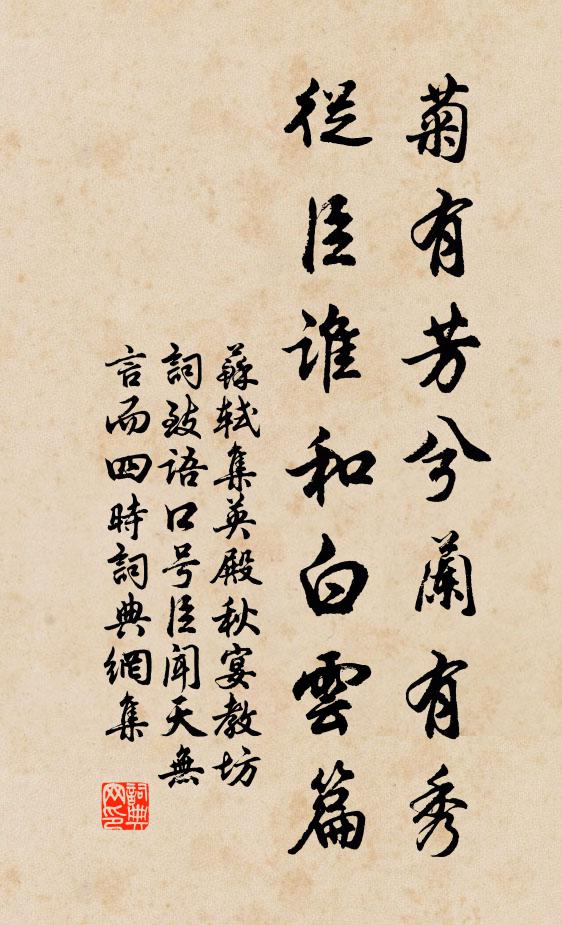 菊有芳兮蘭有秀
從臣誰和白雲篇
蘇軾集英殿秋宴教坊
詞致語口号臣聞天無
言而四時詞典網集
詞典
网印